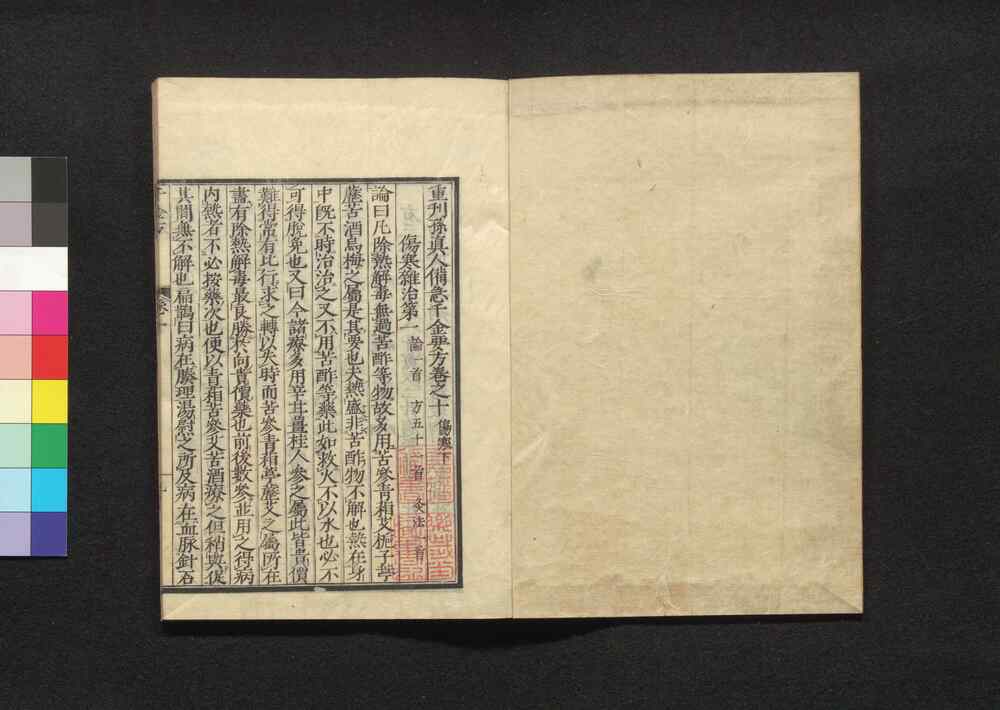 重刊孫真人備急千金要方卷之十 傷寒下
傷寒雜治第一 論一首 方五十一首 灸法一首
論曰凡除熱解毒無過苦酢等物故多用苦參青葙艾梔子葶
藶苦酒烏梅之屬是其要也夫熱盛非苦酢物不解也熱在身
中旣不時治治之又不用苦酢等藥此如救火不以水也必不
可得脫免也又曰今諸療多用辛甘薑桂人參之屬此皆貴價
難得常有比行求之轉以失時而苦參青葙亭藶艾之屬所在
盡有除熱解毒最良勝於向貴價藥也前後數參並用之得病
內熱者不必按藥次也便以青葙苦參艾苦酒療之但稍與促
其間無不解也扁鵲曰病在腠理湯熨之所及病在血脉針石